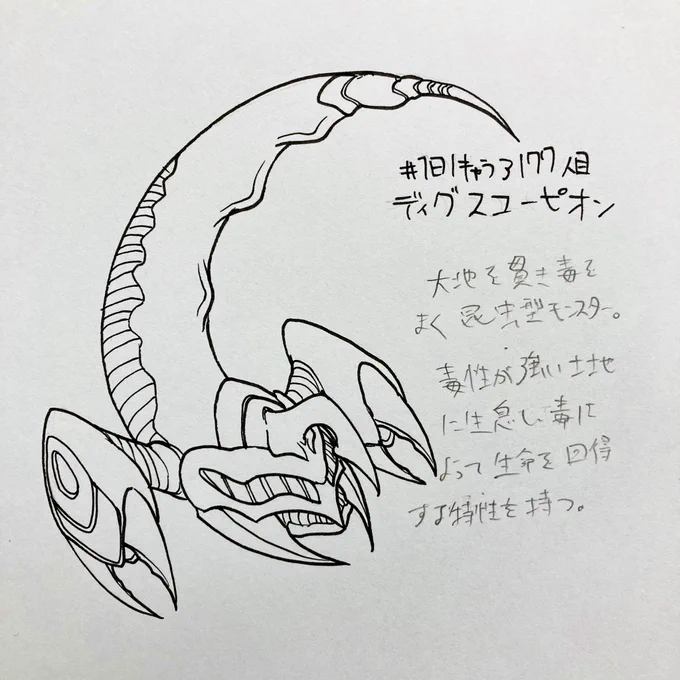 #1日1キャラ177人目
ディグスコーピオン
大地を貫き毒を
まく昆虫型モンスター。
毒性が強い土地
に生息し、毒に
よって生命を回得
する特性を持つ。